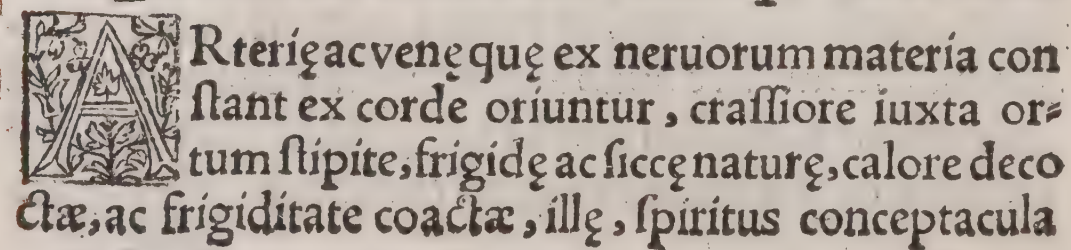 ARterię ac venę quę ex neruorum materia con
ſtant ex corde oriuntur, craſſiore iuxta or⸗
tum ſtipite, frigidę ac ſiccę naturę, calore deco
ctæ, ac frigiditate coactæ, illę, ſpiritus conceptacula